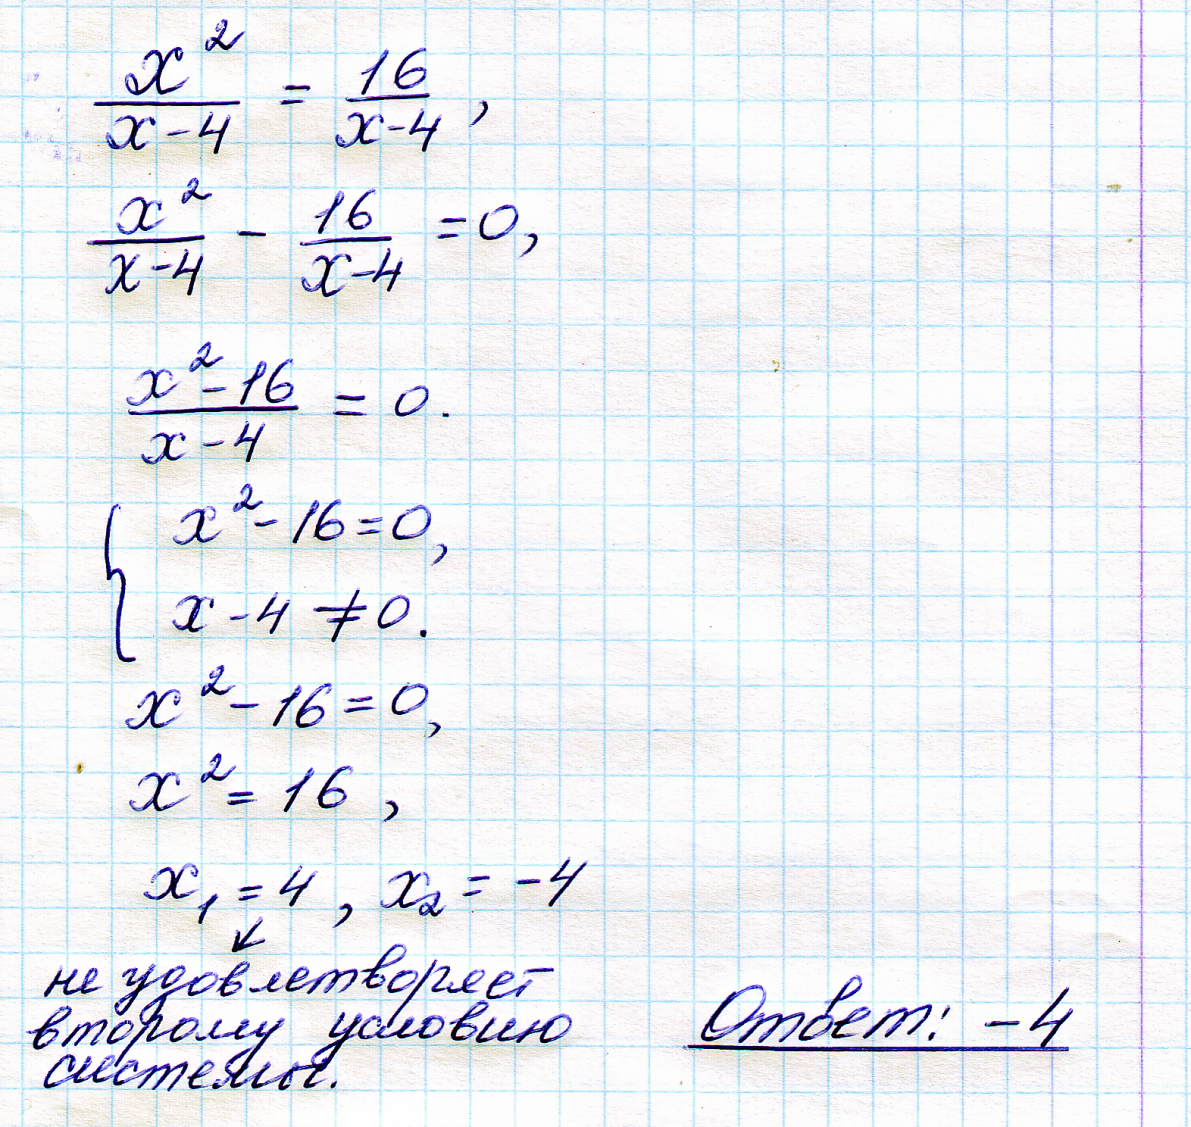 x²/(x-4) = 16/(x-4),
x²/(x-4) - 16/(x-4) = 0,
(x²-16)/(x-4) = 0.
{ x²-16=0,
x-4≠0.
x²-16=0,
x²=16,
x₁=4, x₂=-4
↙
не удовлетворяет
второму условию
системы.
Ответ: -4